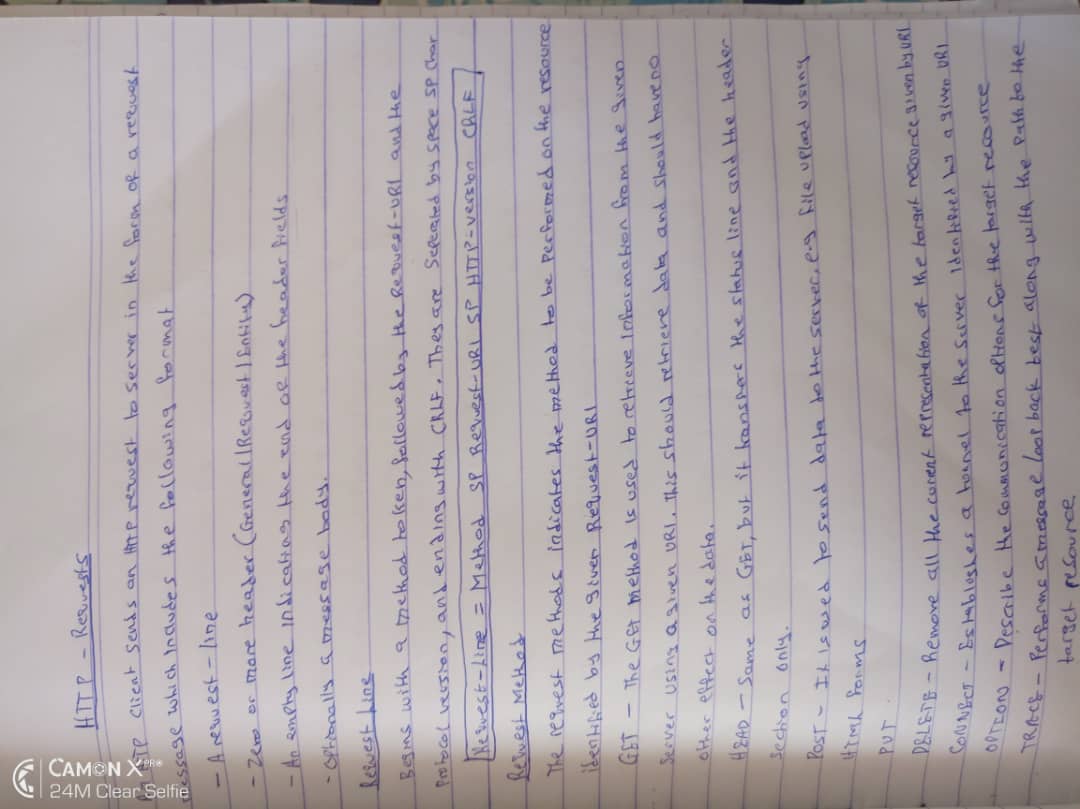 CAMON X PRO
24M Clear Selfie
HTTP - Requests
TP client sends an HTTP request to server in the form of a request
essage which includes the following format
- A request - line
- Zero or more header (General | Request | Entity)
- An empty line indicating the end of the header fields
- Optionally a message body.
Request Line
Begins with a method token, followed by the Request-URI and the
Protocol version, and ending with CRLF. They are Seperated by space SP Char
Request-Line = Method SP Request-URI SP HTTP-version CRLF
Request Method
The request methods indicates the method to be performed on the resource
identified by the given Request-URI
GET - The GET method is used to retrieve information from the given
Server using a given URI. This should retrieve data and should have no
other effect on the data.
HEAD - Same as GET, but it transfers the status line and the header
Section only.
POST - It is used to send data to the server, e.g file upload using
HTML forms
PUT
DELETE - Remove all the curent representation of the target resource given by URI
CONNECT - Establoshes a tunnel to the server identified by a given URI
OPTION - Describe the communication options for the target resource
TRACE - Performs a message loop back test along with the path to the
target resource